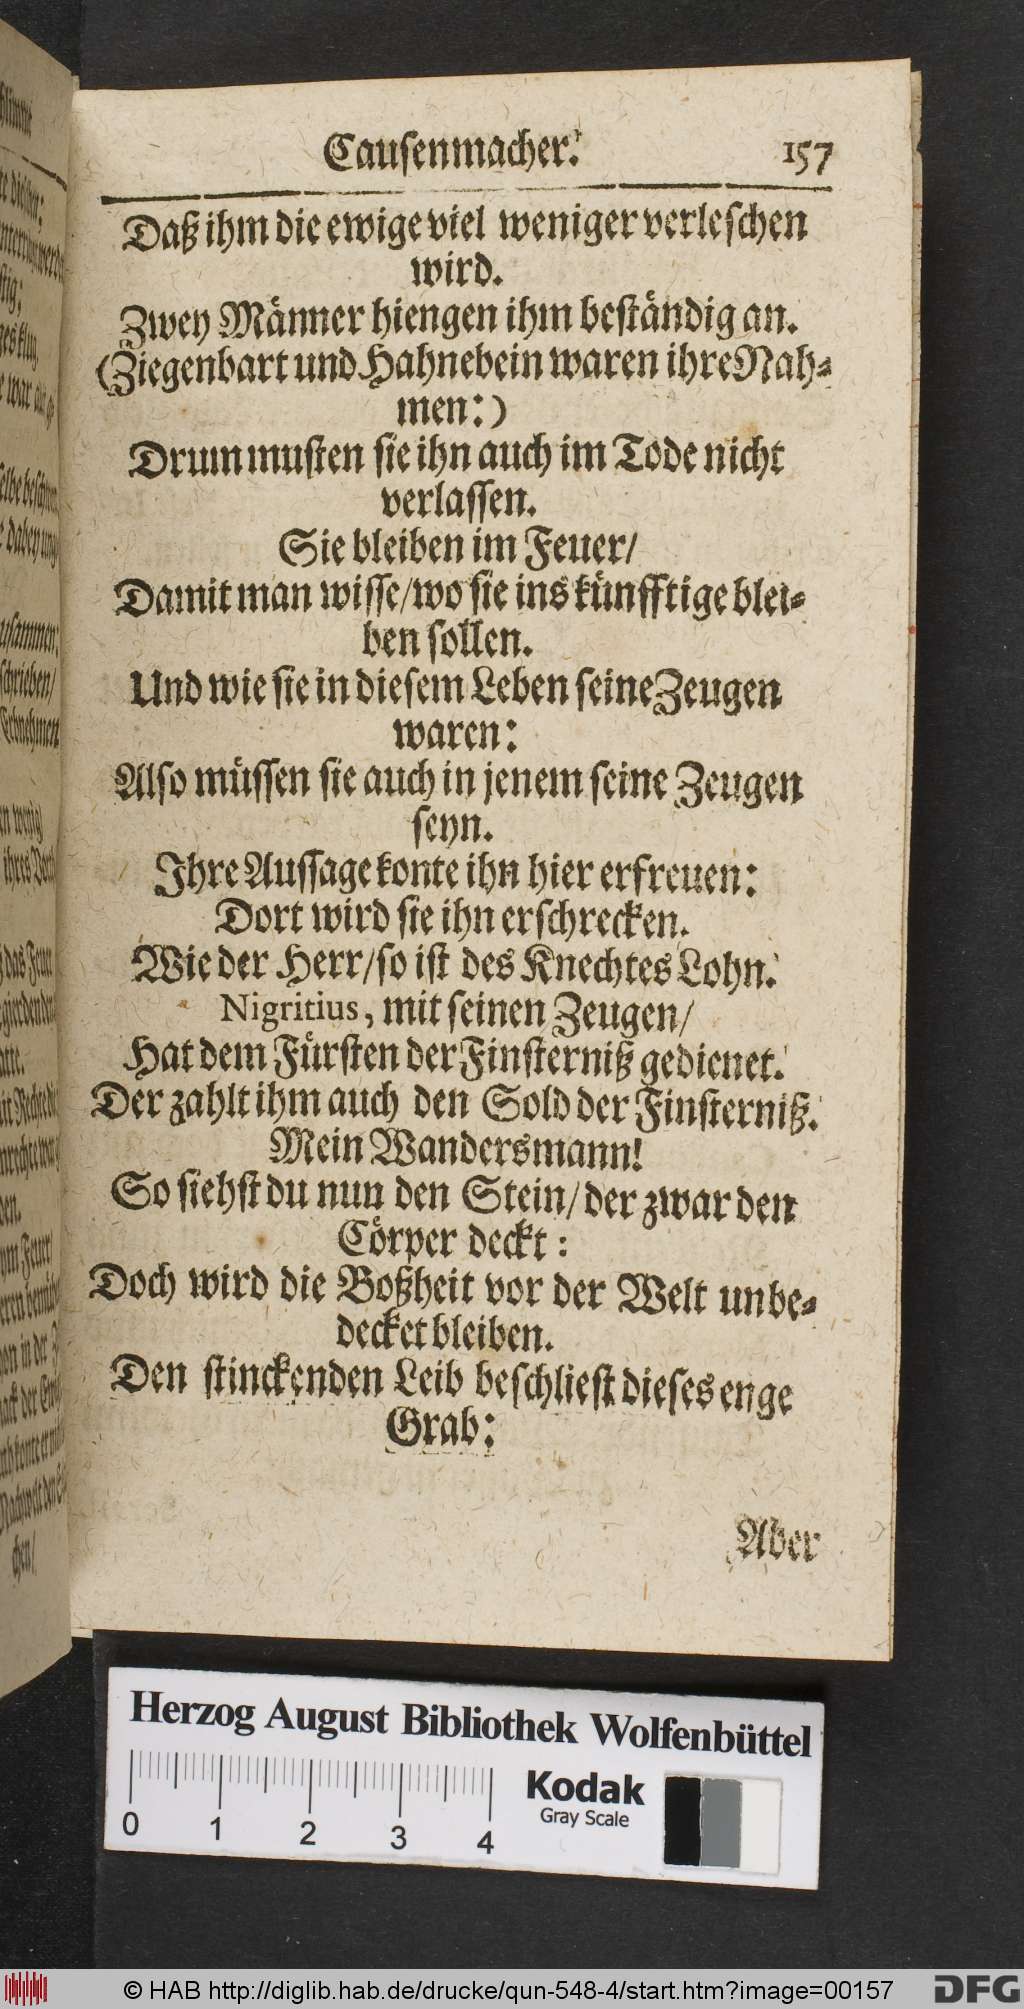 Causenmacher. 157
Daß ihm die ewige viel weniger verleschen
wird.
Zwey Männer hiengen ihm beständig an.
(Ziegenbart und Hahnebein waren ihre Nah-
men:)
Drum musten sie ihn auch im Tode nicht
verlassen.
Sie bleiben im Feuer/
Damit man wisse/wo sie ins künfftige blei-
ben sollen.
Und wie sie in diesem Leben seine Zeugen
waren:
Also müssen sie auch in jenem seine Zeugen
seyn.
Ihre Aussage konte ihn hier erfreuen:
Dort wird sie ihn erschrecken.
Wie der Herr/so ist des Knechtes Lohn.
Nigritius, mit seinen Zeugen/
Hat dem Fürsten der Finsterniß gedienet.
Der zahlt ihm auch den Sold der Finsterniß.
Mein Wandersmann!
So siehst du nun den Stein/der zwar den
Cörper deckt:
Doch wird die Boßheit vor der Welt unbe-
decket bleiben.
Den stinckenden Leib beschliest dieses enge
Grab:
Aber
Herzog August Bibliothek Wolfenbüttel
Kodak
Gray Scale
0 1 2 3 4
© HAB http://diglib.hab.de/drucke/qun-548-4/start.htm?image=00157
DFG